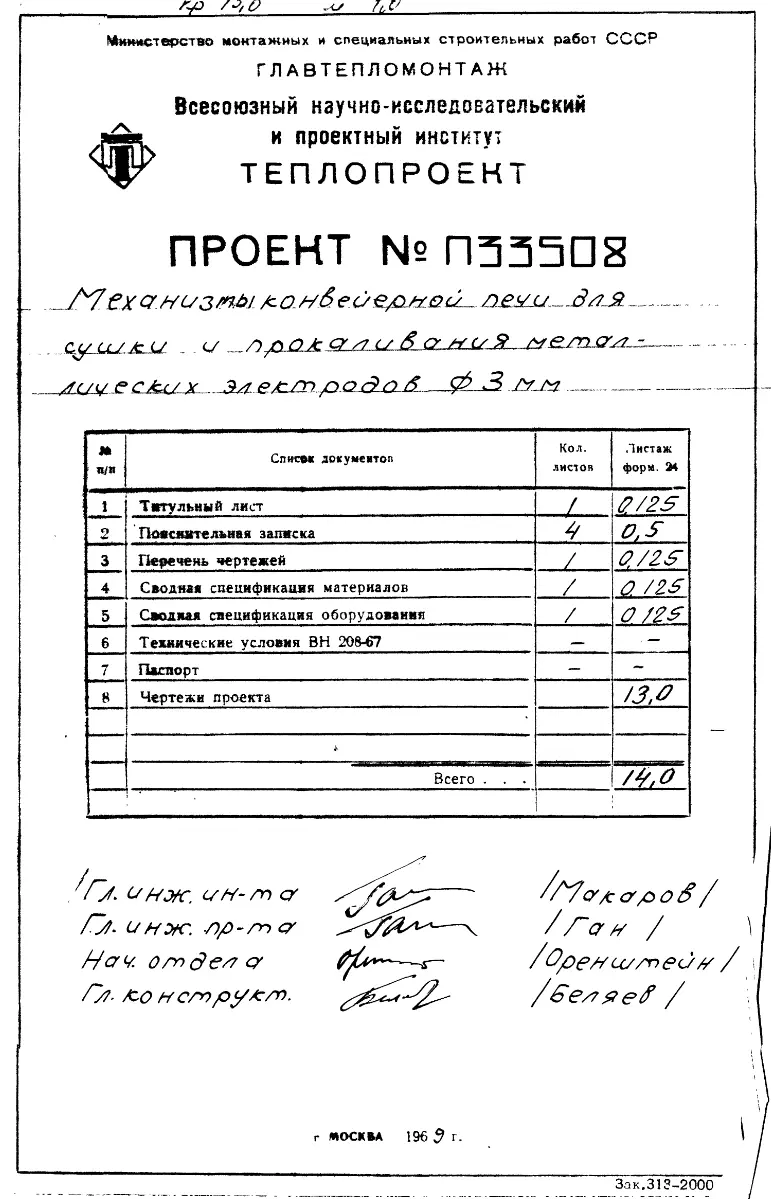 Министерство монтажных и специальных строительных работ СССР
ГЛАВТЕПЛОМОНТАЖ
Всесоюзный научно-исследовательский
и проектный институт
ТЕПЛОПРОЕКТ
ПРОЕКТ № П33508
Механизмы конвейерной печи для
сушки и прокаливания метал-
лических электродов Ф 3 мм
№ п/п Список документов Кол. листов Листаж форм. 24
1 Титульный лист 1 0,125
2 Пояснительная записка 4 0,5
3 Перечень чертежей 1 0,125
4 Сводная спецификация материалов 1 0,125
5 Сводная спецификация оборудования 1 0,125
6 Технические условия ВН 208-67 — —
7 Паспорт — —
8 Чертежи проекта 13,0
Всего . . . 14,0
Гл. инж. ин-та /Макаров/
Гл. инж. пр-та /Ган/
Нач. отдела /Оренштейн/
Гл. конструкт. /Беляев/
г МОСКВА 1969 г.
Зак.313-2000